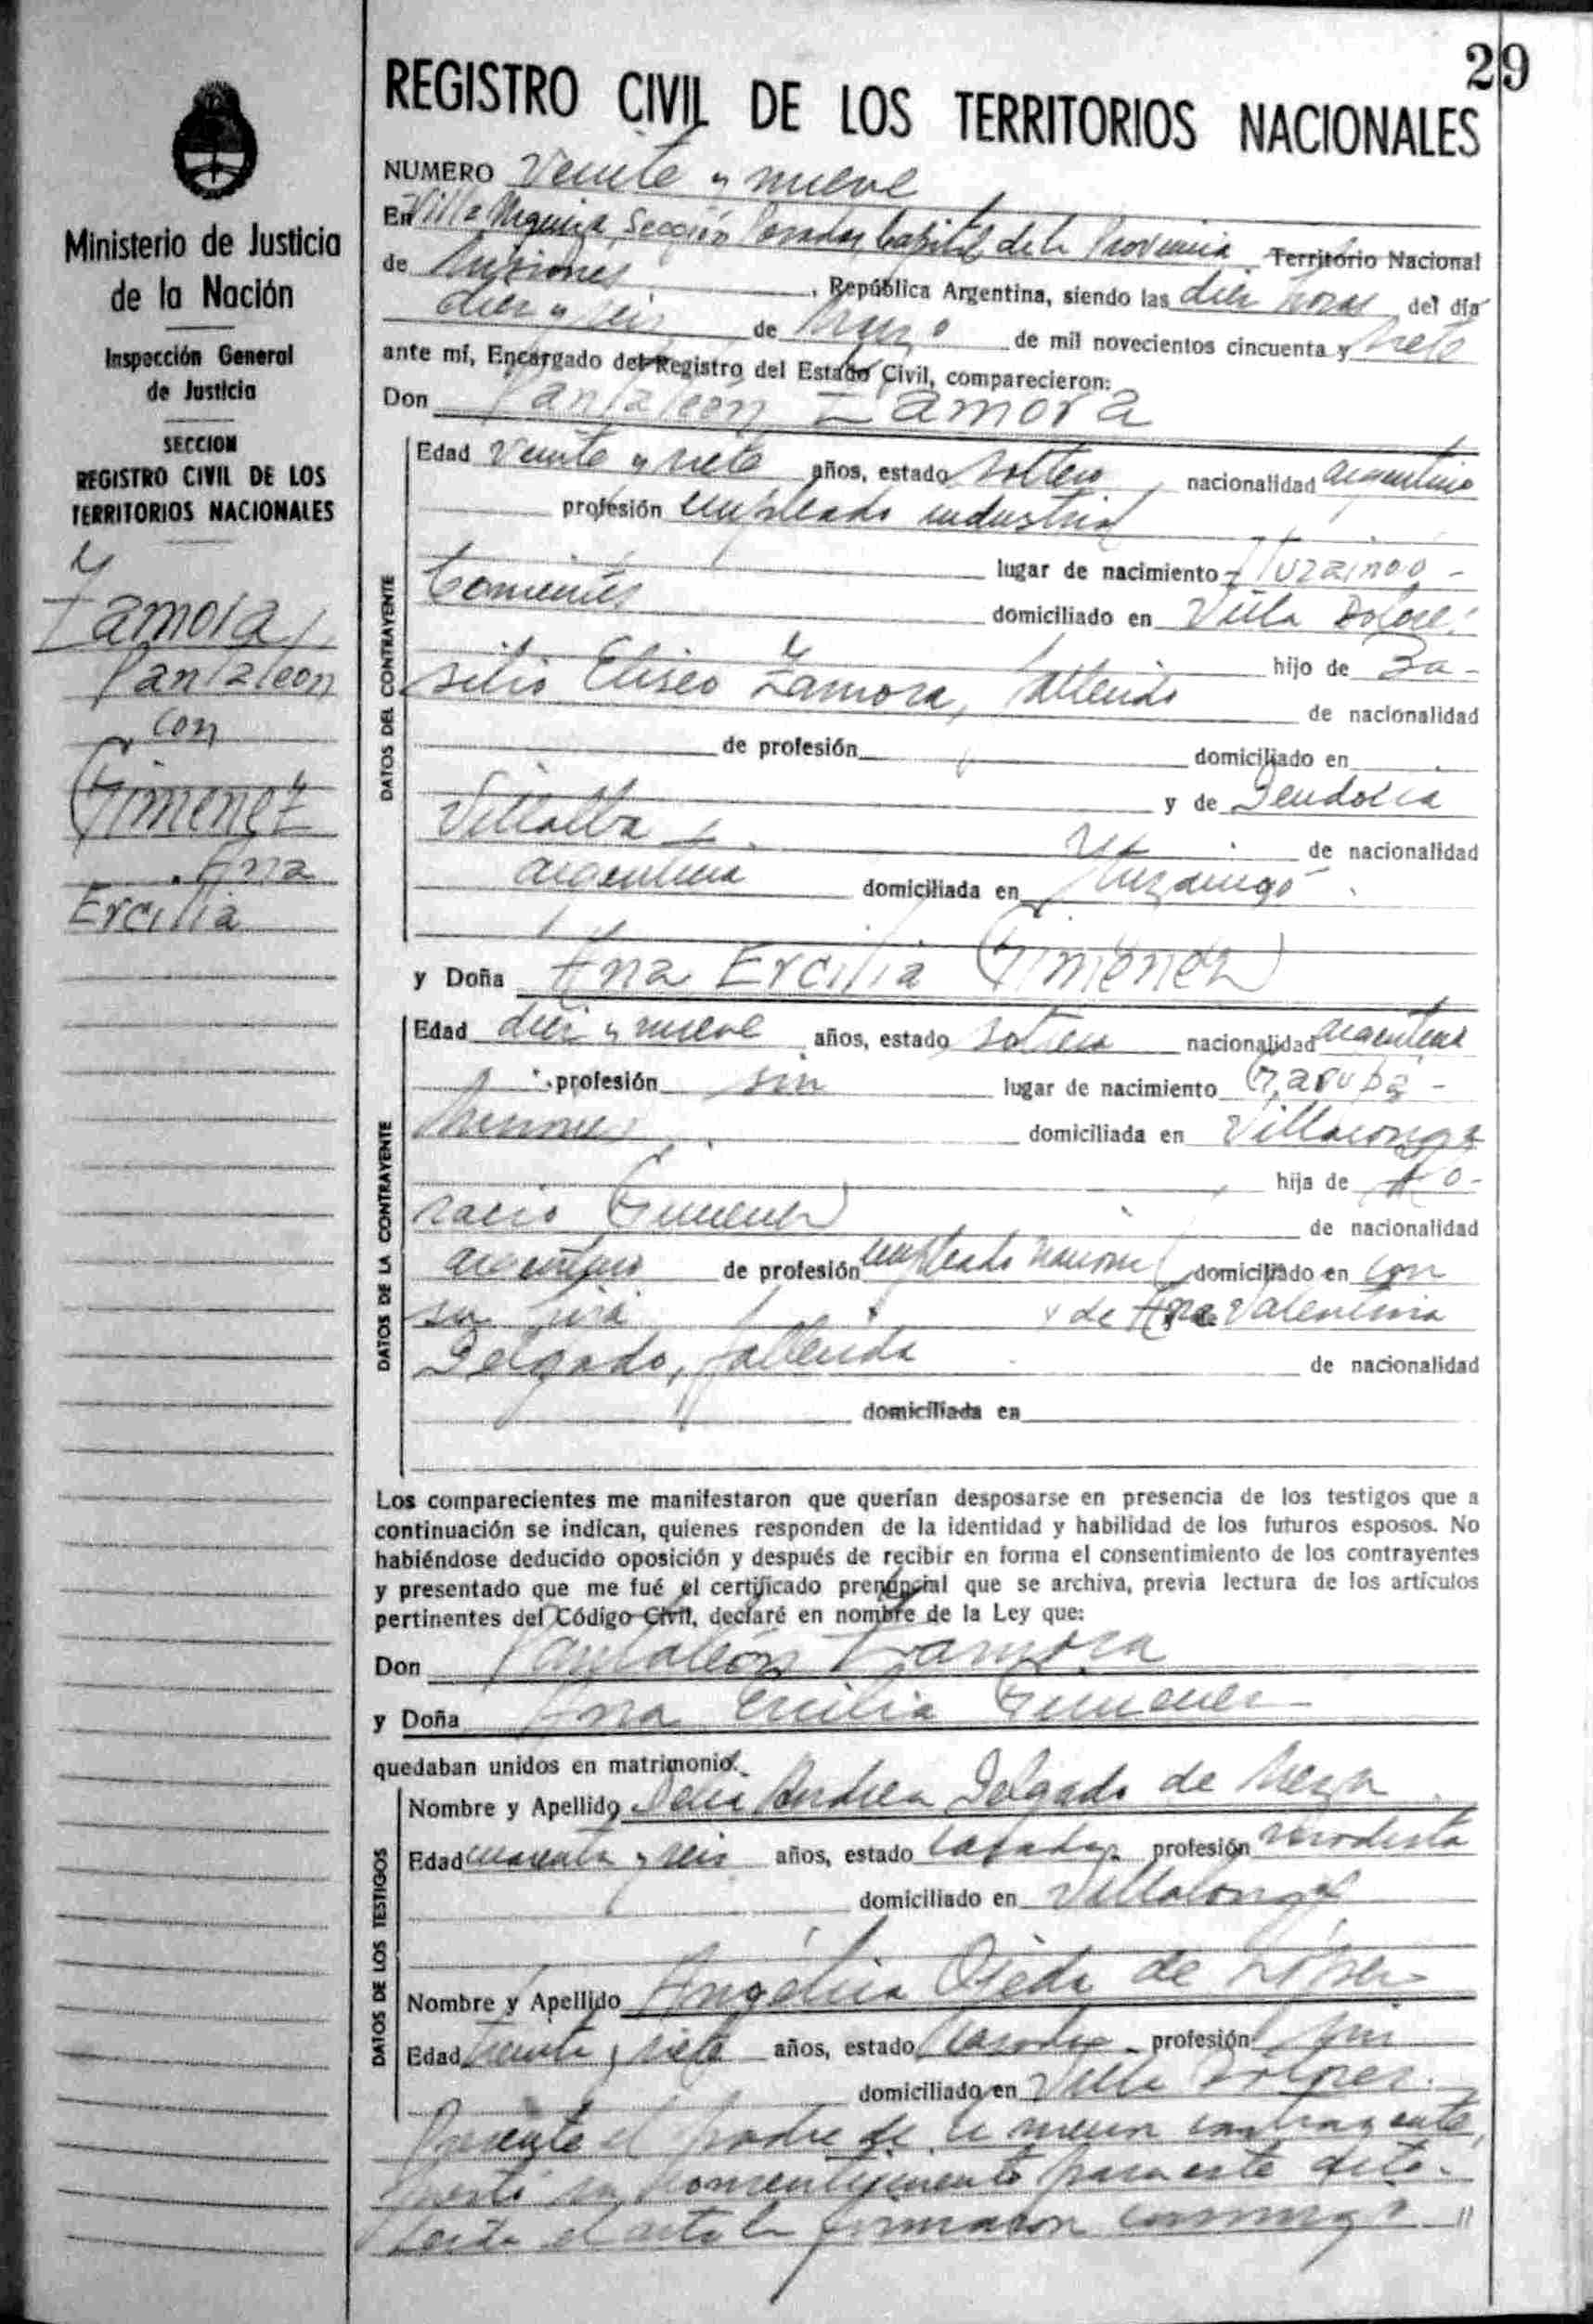 29
REGISTRO CIVIL DE LOS TERRITORIOS NACIONALES
Ministerio de Justicia
de la Nación
Inspección General
de Justicia
SECCION
REGISTRO CIVIL DE LOS
TERRITORIOS NACIONALES
Zamora
Pantaleon
con
Gimenez
Ana
Ercilia
NUMERO Veinte y nueve
En Villa Urquiza, Sección Posadas Capital de la Provincia Territorio Nacional
de Misiones, República Argentina, siendo las diez horas del día
diez y seis de Marzo de mil novecientos cincuenta y siete
ante mí, Encargado del Registro del Estado Civil, comparecieron:
Don Pantaleón Zamora
DATOS DEL CONTRAYENTE
Edad veinte y siete años, estado soltero, nacionalidad argentino
profesión empleado industrial
lugar de nacimiento Ituzaingó -
Corrientes domiciliado en Villa Dolores
hijo de Ba-
silio Eliseo Zamora, fallecido de nacionalidad
de profesión domiciliado en
y de Deudocia
Villalba de nacionalidad
argentina domiciliada en Ituzaingó
y Doña Ana Ercilia Gimenez
DATOS DE LA CONTRAYENTE
Edad diez y nueve años, estado soltera nacionalidad argentina
profesión sin lugar de nacimiento Garupá -
Misiones domiciliada en Villalonga
hija de Ho-
racio Gimenez de nacionalidad
argentino de profesión empleado nacional domiciliado en con
su hija y de Ana Valentina
Delgado, fallecida de nacionalidad
domiciliada en
Los comparecientes me manifestaron que querían desposarse en presencia de los testigos que a
continuación se indican, quienes responden de la identidad y habilidad de los futuros esposos. No
habiéndose deducido oposición y después de recibir en forma el consentimiento de los contrayentes
y presentado que me fué el certificado prenupcial que se archiva, previa lectura de los artículos
pertinentes del Código Civil, declaré en nombre de la Ley que:
Don Pantaleón Zamora
y Doña Ana Ercilia Gimenez
quedaban unidos en matrimonio.
DATOS DE LOS TESTIGOS
Nombre y Apellido Delia Andrea Delgado de Meza
Edad cuarenta y seis años, estado casada profesión Modista
domiciliado en Villalonga
Nombre y Apellido Angélica Ojeda de López
Edad treinta y siete años, estado casada - profesión sin
domiciliado en Villa Dolores.
Presente el padre de la menor contrayente,
prestó su consentimiento para este acto.
Leída el acta la firmaron conmigo